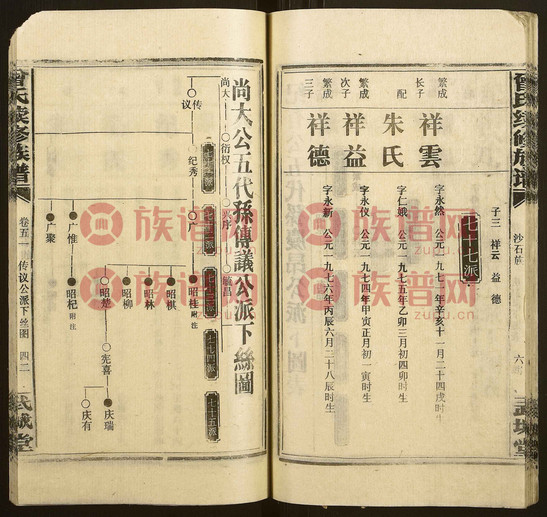 曾氏续修族谱
沙石
子三 祥云 益 德
七十七派
繁成长子 祥雲 字永然 公元一九七一年辛亥十一月二十四戌时生
配 朱氏 字仁娥 公元一九七五年乙卯三月初四卯时生
繁成次子 祥益 字永仪 公元一九七四年甲寅正月初一寅时生
繁成三子 祥德 字永新 公元一九七六年丙辰六月二十八辰时生
武城堂
尚大公五代孫傳議公派下絲圖
尚大 衍权 毓昌
传议 纪秀 广
广惟
广聚
七十四派
七十五派
昭桂 附往
昭棋
昭林
昭柳
昭楚 宪喜 庆瑞
庆有
昭
曾氏续修族谱
卷五一 传议公派下丝图 四二
武城堂
族谱网
zupu.cn
族谱网
zupu.cn